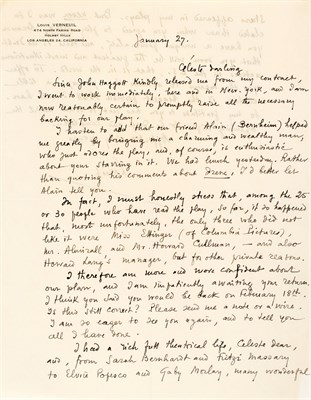 LOUIS VERNEUIL
474 NORTH FARING ROAD
HOLMBY HILLS
LOS ANGELES 24, CALIFORNIA
January 27.
Céleste darling
Since John Haggott kindly released me from my contract,
I went to work immediately, here and in New-York, and I am
now reasonably certain to promptly raise all the necessary
backing for our play.
I hasten to add that our friend Alain (Bernheim) helped
me greatly by bringing me a charming and wealthy man,
who just adores the play, and, of course, is enthusiastic
about your starring in it. We had lunch yesterday. Rather
than quoting his comments about Irene, I'd better let
Alain tell you.
In fact, I must honestly stress that, among the 25
or 30 people who have read the play, so far, it so happened
that, most unfortunately, the only three who did not
like it were Miss Ettinger (of Columbia Pictures),
Mr. Almirall and Mr. Howard Cullman, — and also
Howard Lang's manager, but for other private reasons.
I therefore am more and more confident about
our plans, and I am impatiently awaiting your return.
I think you said you would be back on February 18th.
Is this still correct? Please send me a note or a wire.
I am so eager to see you again, and to tell you
all I have done.
I had a rich full theatrical life, Celeste dear,
and, from Sarah Bernhardt and Fritzi Massary
to Elvire Popesco and Gaby Morlay, many wonderful